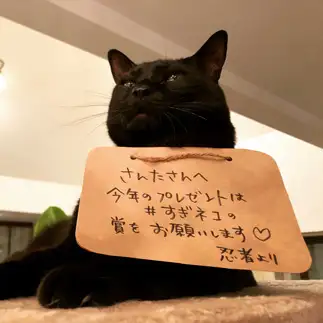 さんたさんへ
今年のプレゼントは
#すぎネコの
賞をお願いします♡
忍者より